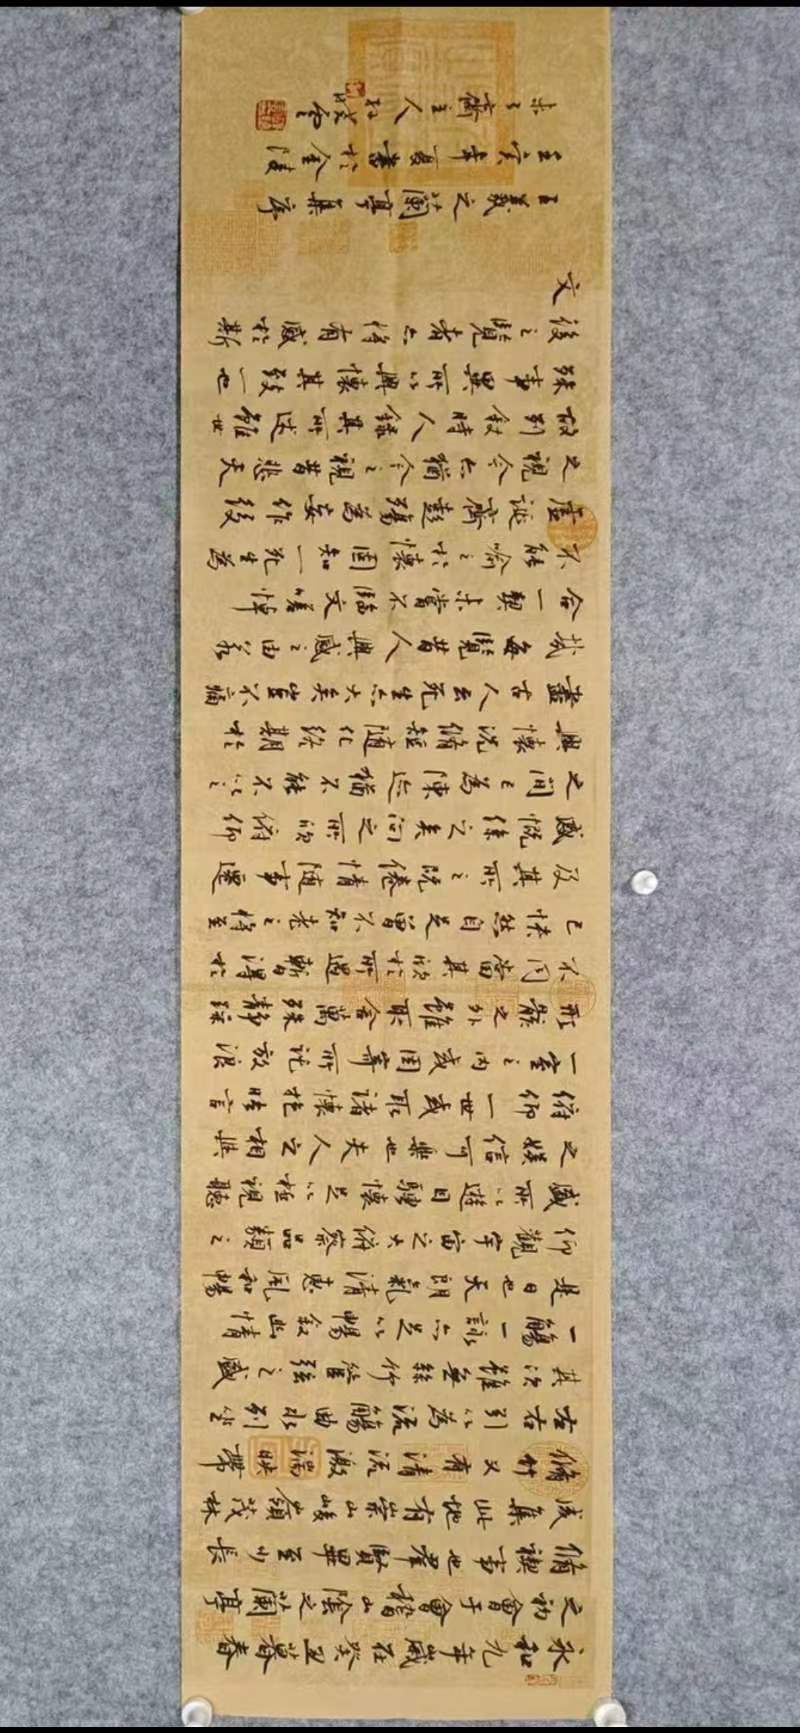 永和九年歲在癸丑暮春
之初會于會稽山陰之蘭亭
脩禊事也羣賢畢至少長
咸集此地有崇山峻領茂林
脩竹又有清流激湍映帶
左右引以為流觴曲水列坐
其次雖無絲竹管弦之盛
一觴一詠亦足以暢敘幽情
是日也天朗氣清惠風和暢
仰觀宇宙之大俯察品類之
盛所以遊目騁懷足以極視聽
之娛信可樂也夫人之相與
俯仰一世或取諸懷抱晤言
一室之內或因寄所託放浪
形骸之外雖取舍萬殊靜躁
不同當其欣於所遇暫得於
己快然自足曾不知老之將至
及其所之既倦情隨事遷
感慨係之矣向之所欣俯仰
之間已為陳迹猶不能不以之
興懷況脩短隨化終期於
盡古人云死生亦大矣豈不痛
哉每覽昔人興感之由若
合一契未嘗不臨文嗟悼
不能喻之於懷固知一死生為
虛誕齊彭殤為妄作後
之視今亦猶今之視昔悲夫
故列敘時人錄其所述雖世
殊事異所以興懷其致一也
後之覽者亦將有感於斯
文
王羲之蘭亭集序
壬寅年夏書於金陵
齋主人